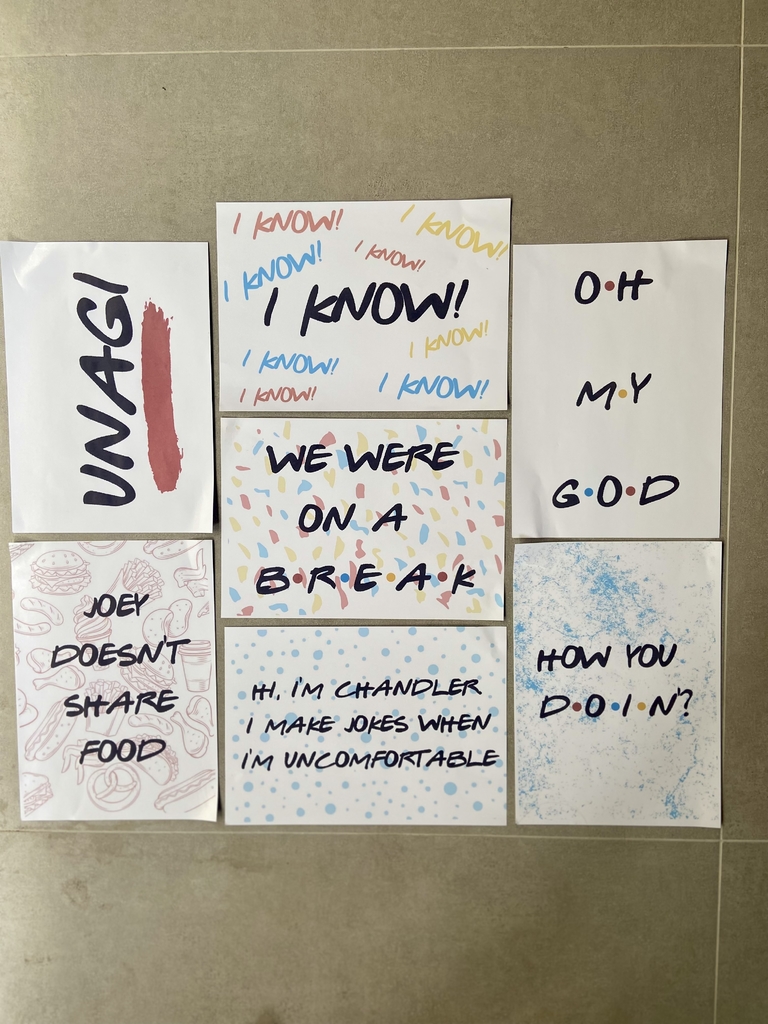 UNAGI
I KNOW!
I KNOW!
I KNOW!
I KNOW!
I KNOW!
I KNOW!
I KNOW!
I KNOW!
I KNOW!
O•H
M•Y
G•O•D
WE WERE
ON A
B•R•E•A•K
JOEY
DOESN'T
SHARE
FOOD
HI, I'M CHANDLER
I MAKE JOKES WHEN
I'M UNCOMFORTABLE
HOW YOU
D•O•I•N'?